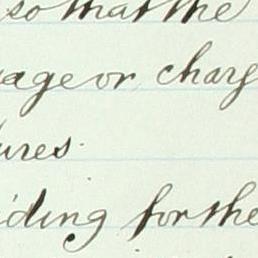 so that the
age or charg
ures.
iding for the